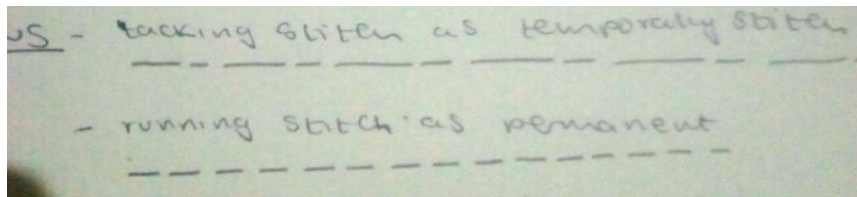 us - tacking stitch as temporaly stitch
- running stitch as permanent